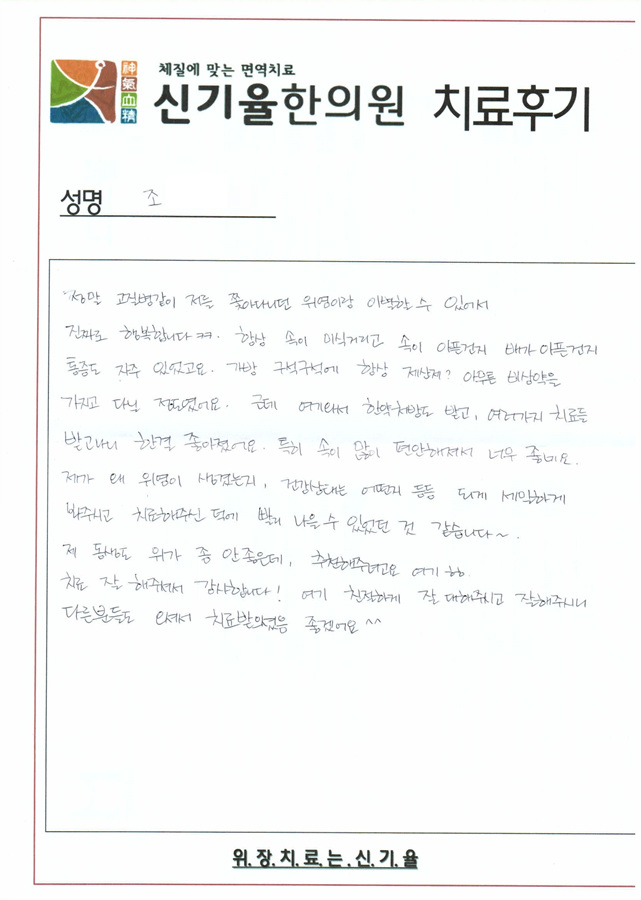 체질에 맞는 면역치료
神氣血精
신기율한의원 치료후기
성명 조
정말 고질병같이 저를 쫓아다니던 위염이랑 이별할 수 있어서
진짜로 행복합니다 ㅋㅋ. 항상 속이 미식거리고 속이 아픈건지 배가 아픈건지
통증도 자주 있었고요. 가방 구석구석에 항상 제산제? 아무튼 비상약을
가지고 다닐 정도였어요. 근데 여기와서 한약처방도 받고, 여러가지 치료들
받고나니 한결 좋아졌어요. 특히 속이 많이 편안해져서 너무 좋네요.
제가 왜 위염이 생겼는지, 건강상태는 어떤지 등등 되게 세밀하게
봐주시고 치료해주신 덕에 빨리 나을 수 있었던 것 같습니다~.
제 동생도 위가 좀 안좋은데, 추천해주려고요 여기 ㅎㅎ.
치료 잘 해주셔서 감사합니다! 여기 친절하게 잘 대해주시고 잘해주시니
다른분들도 오셔서 치료받으셨음 좋겠어요 ^^
위.장.치.료.는.신.기.율